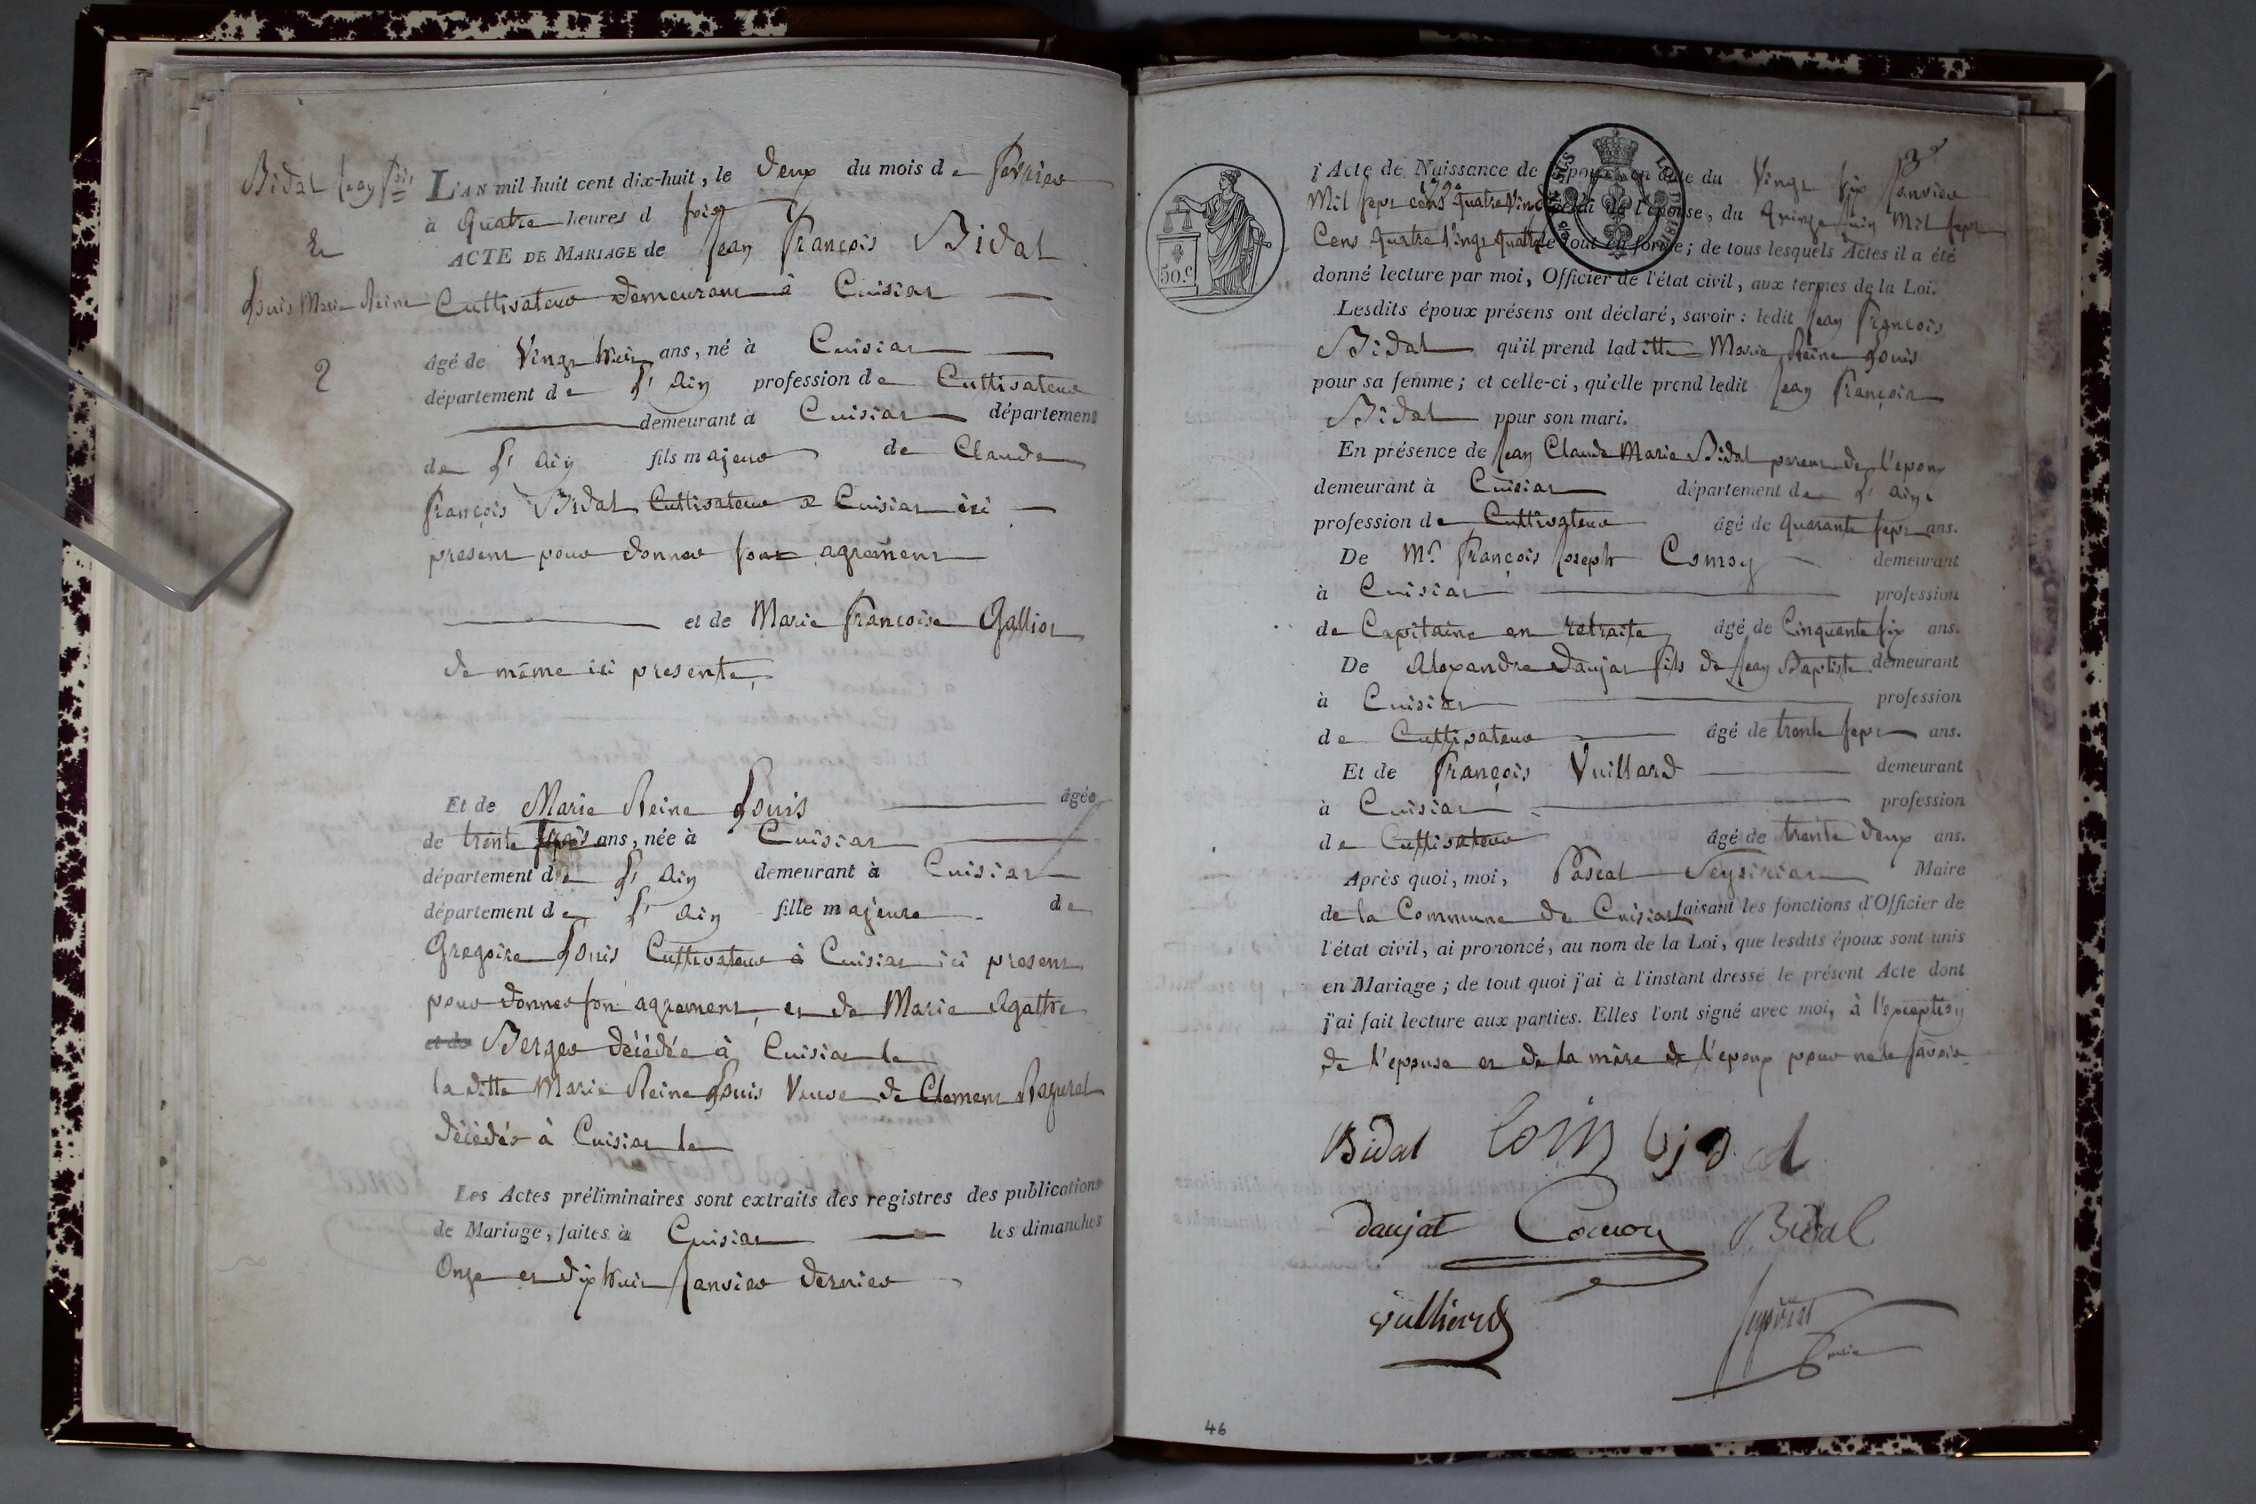 Bidal Jean fois
et
Louis Marie Reine
2
L'AN mil huit cent dix-huit, le deux du mois de fevrier
à quatre heures d soir
ACTE DE MARIAGE de Jean françois Bidal
Cultivateur demeurant à Cuisiat
âgé de Vingt huit ans, né à Cuisiat
département de L'ain profession de Cultivateur
demeurant à Cuisiat département
de L'ain fils majeur de Claude
françois Bidal Cultivateur à Cuisiat ici
present pour donner son agrement
et de Marie françoise Gallion
de même ici presente,
Et de Marie Reine Louis âgée
de trente trois ans, née à Cuisiat
département de L'ain demeurant à Cuisiat
département de L'ain fille majeure de
Gregoire Louis Cultivateur à Cuisiat ici present
pour donner son agrement, et de Marie Agathe
et de Berger décédée à Cuisiat le
la ditte Marie Reine Louis Veuve de Clement
décédé à Cuisiat le
Les Actes préliminaires sont extraits des registres des publications
de Mariage, faites à Cuisiat les dimanches
Onze et dix huit Janvier dernier
50.c
l Acte de Naissance de l'époux en date du Vingt six Janvier
1790
Mil sept cens quatre Vingt celui de l'épouse, du quinze Juin Mil sept
Cens quatre Vingt quatre le tout en forme; de tous lesquels Actes il a été
donné lecture par moi, Officier de l'état civil, aux termes de la Loi.
Lesdits époux présens ont déclaré, savoir: ledit Jean françois
Bidal qu'il prend laditte Marie Reine Louis
pour sa femme; et celle-ci, qu'elle prend ledit Jean françois
Bidal pour son mari.
En présence de Jean Claude Marie Bidal parent de l'epoux
demeurant à Cuisiat département de L'ain
profession de Cultivateur âgé de quarante sept ans.
De Mr. françois Joseph Comoy demeurant
à Cuisiat profession
de Capitaine en retraite âgé de Cinquante six ans.
De Alexandre Daujat fils de Jean Baptiste demeurant
à Cuisiat profession
de Cultivateur âgé de trente sept ans.
Et de françois Vuillard demeurant
à Cuisiat profession
de Cultivateur âgé de trente deux ans.
Après quoi, moi, Pascal Seysiriat Maire
de la Commune de Cuisiat faisant les fonctions d'Officier de
l'état civil, ai prononcé, au nom de la Loi, que lesdits époux sont unis
en Mariage; de tout quoi j'ai à l'instant dressé le présent Acte dont
j'ai fait lecture aux parties. Elles l'ont signé avec moi, à l'exception
de l'epouse et de la mère de l'epoux pour ne le savoir
Bidal bidal
daujat Comoy Bidal
vulliard
46